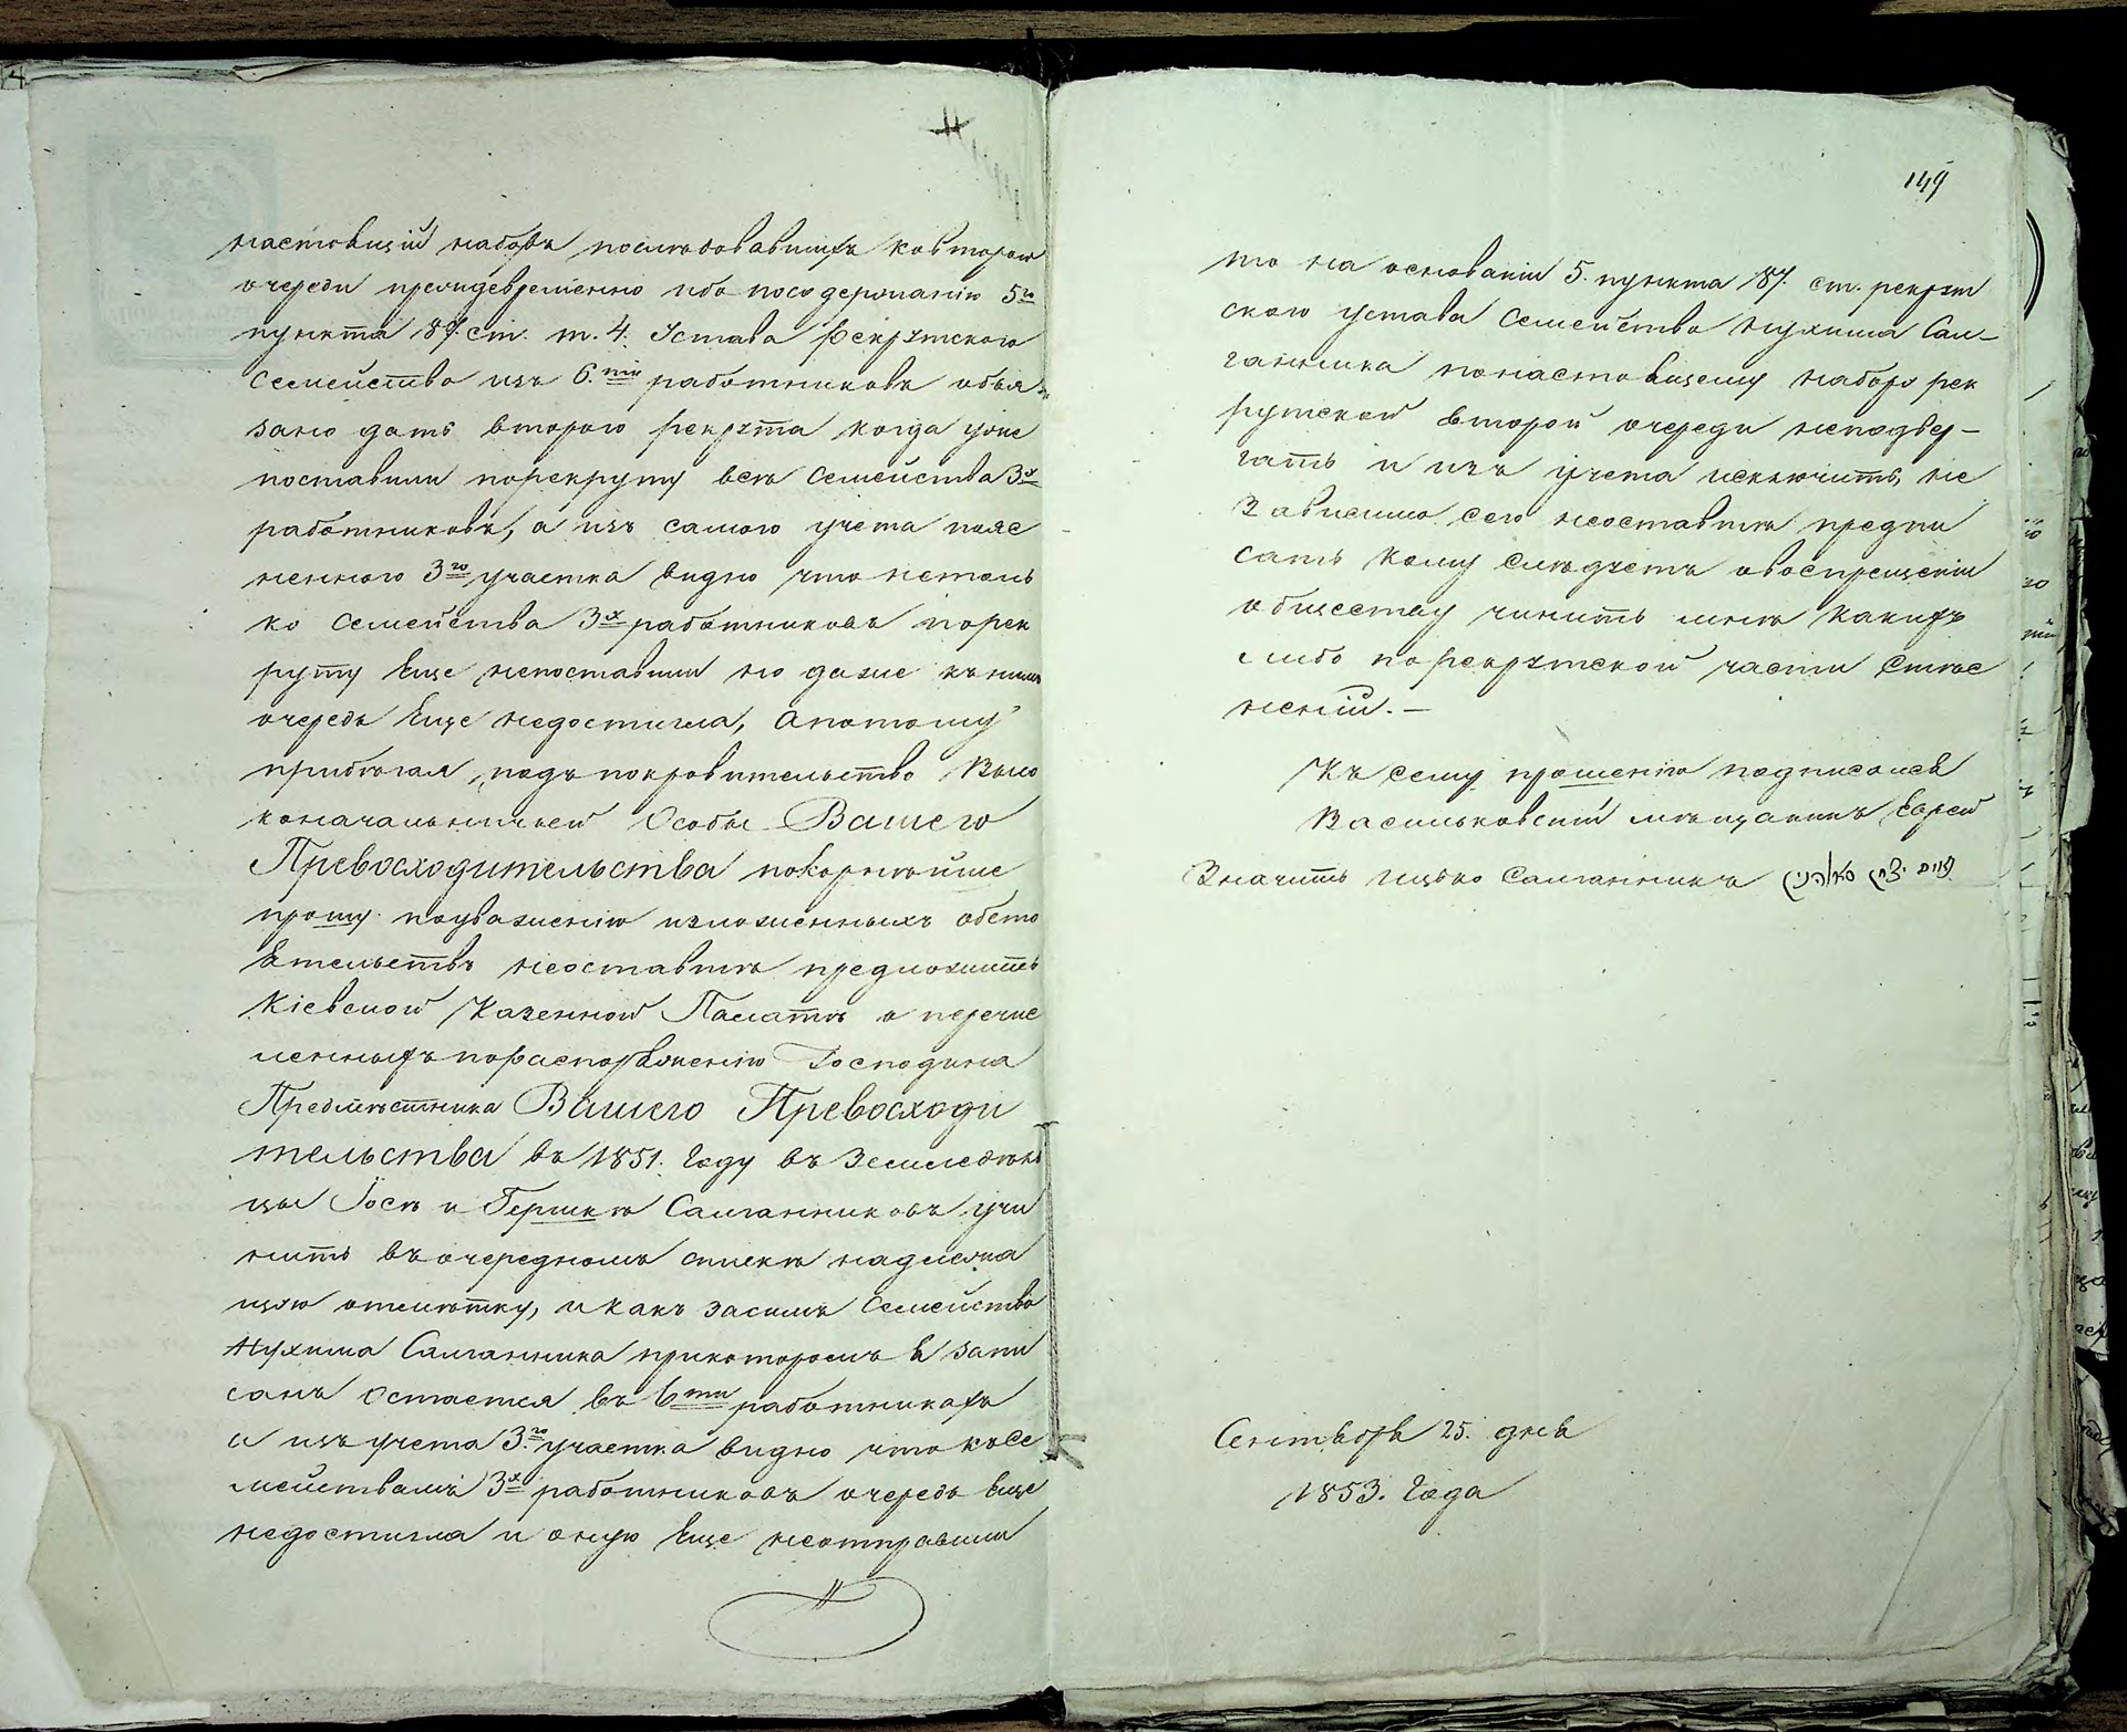 149
настоящій наборъ послѣдовавшихъ ковторой
очереди преждевременно ибо посодержанію 5го
пункта 87. ст. т. 4. Устава Рекрутского
семейство изъ 6.ти работниковъ обья-
зано дать второго рекрута когда уже
поставили порекруту всѣ семейства 3х
работниковъ, а изъ самого учета пояс
неннаго 3го участка видно что нетоль
ко семейства 3х работниковъ порек
руту еще непоставили но даже къ нимъ
очередь еще недостигла, апотому
прибѣгая подъ покровительство Высо
коначальничьей Особы Вашего
Превосходительства покорнѣйше
прошу поуваженію изложенныхъ обсто
ятельствъ неоставить предложить
Кіевской Казенной Палатѣ о перечис
ленныхъ пораспоряженію Господина
Предмѣстника Вашего Превосходи
тельства въ 1851. году въ Земледѣль
цы Іосѣ и Гершкѣ Салганниковъ учи
нить въ очередномъ спискѣ надлежа
щую отмѣтку, и какъ засимъ семейство
Нухима Салганника прикоторомъ я запи
санъ остается въ 6ти работникахъ
а изъ учета 3.го участка видно что късе
мействамъ 3х работниковъ очередь еще
недостигла и оную еще неотправили
то на основаніи 5. пункта 87. ст. рекрут
ского устава семейство Нухима Сал-
ганника понастоящему набору рек
рутской второй очереди неподвер-
гать и изъ учета исключить, не
зависимо сего неоставить предпи
сать кому слѣдуетъ овоспрещеніи
обществу чинить мнѣ какихъ
либо порекрутской части стѣс
неній. —
Къ сему прошенію подписался
Васильковскій мѣщанинъ Еврей
Значить Ицько Салганникъ
Сентября 25. дня
1853. Года